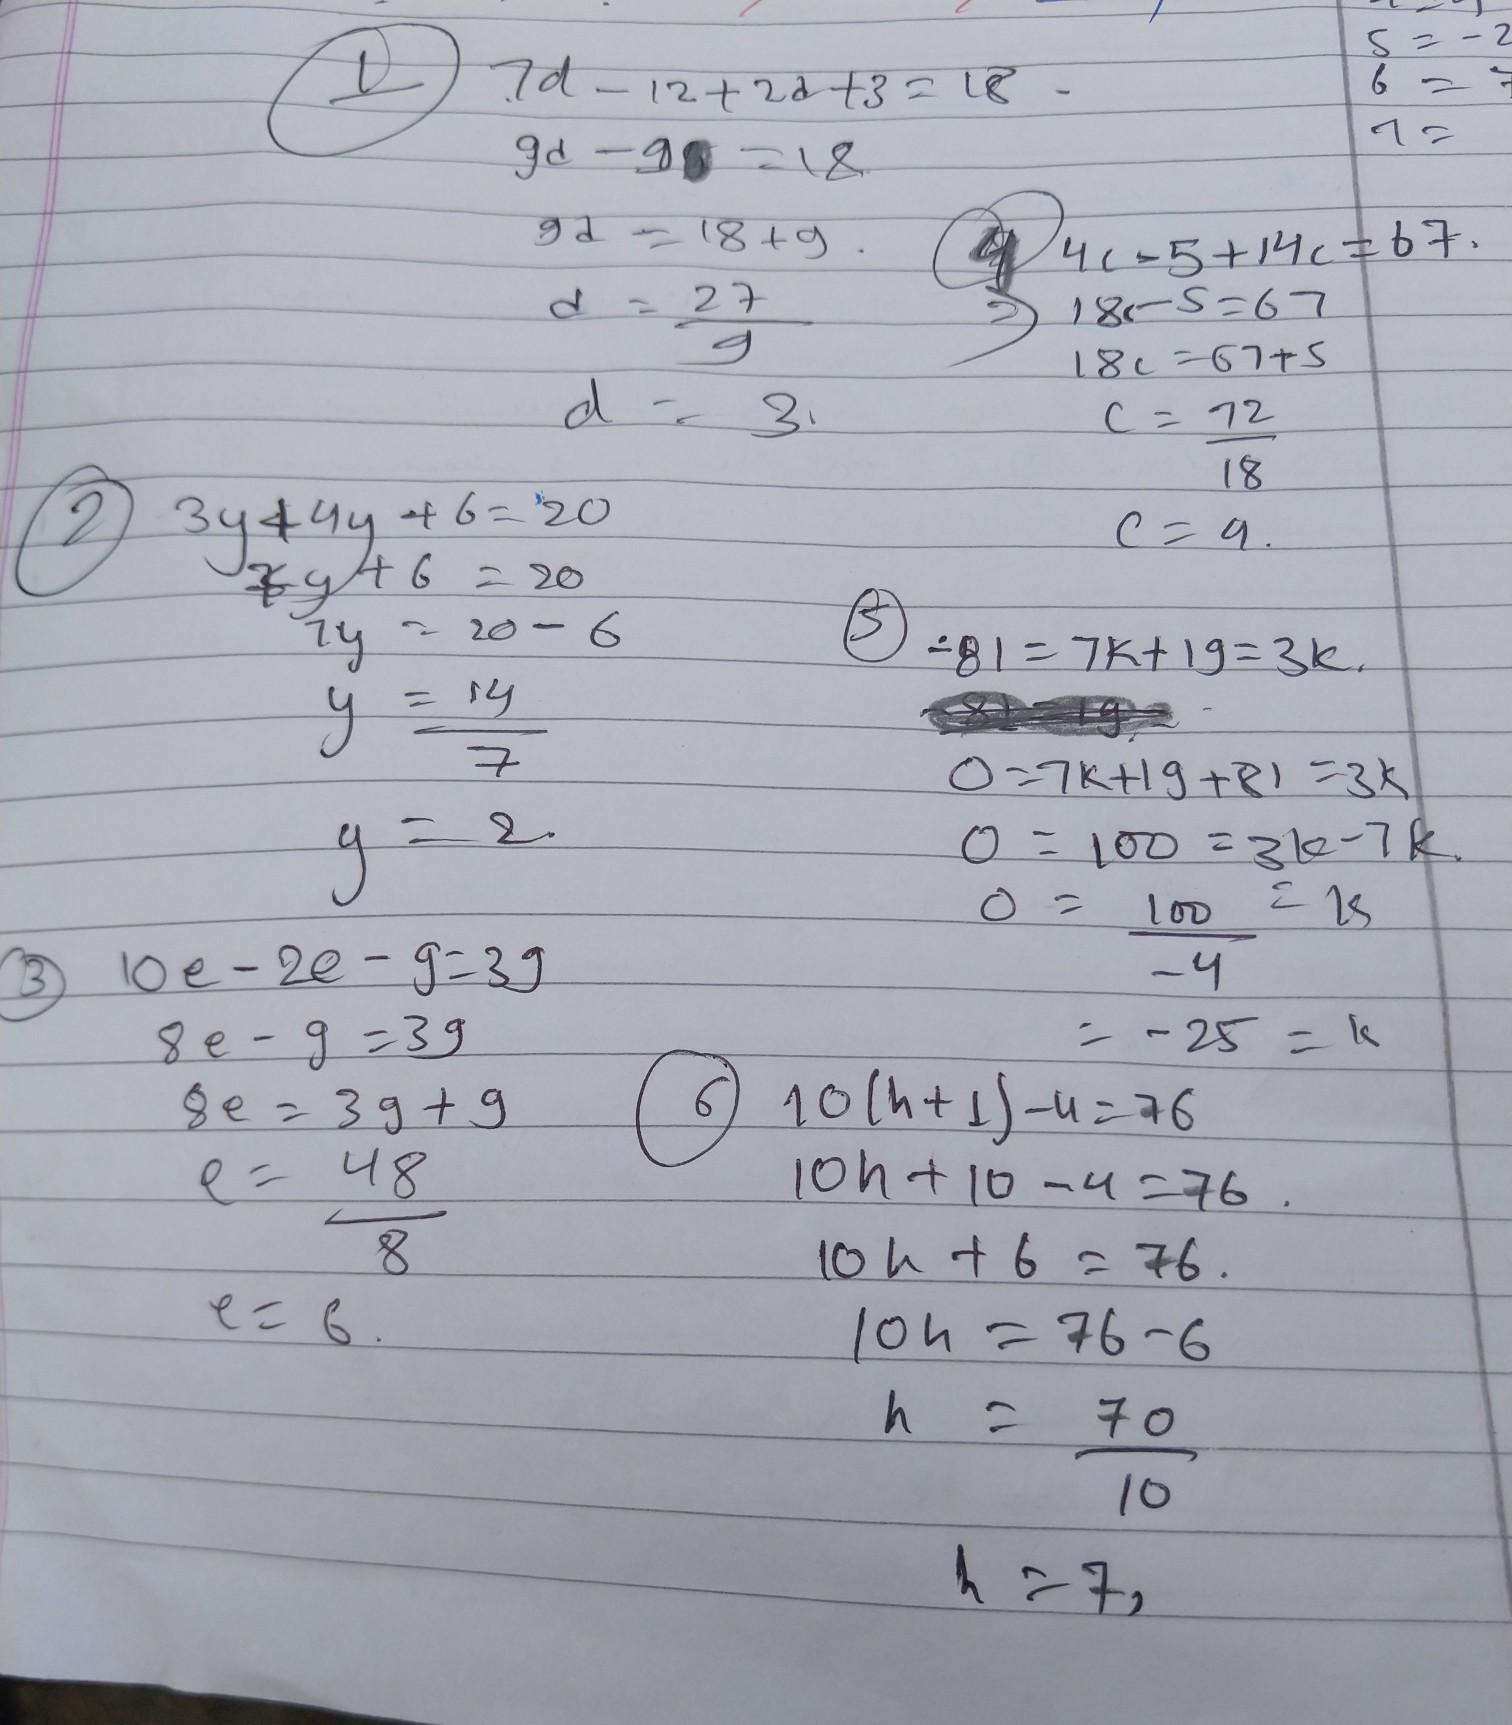 5 = -2
6 = 7
7 =
1 7d - 12 + 2d + 3 = 18 -
9d - 9 = 18
9d = 18 + 9.
d = 27
9
d = 3.
2 3y + 4y + 6 = 20
7y + 6 = 20
7y = 20 - 6
y = 14
7
y = 2.
3 10e - 2e - 9 = 39
8e - 9 = 39
8e = 39 + 9
e = 48
8
e = 6.
4 4c - 5 + 14c = 67.
=) 18c - 5 = 67
18c = 67 + 5
c = 72
18
c = 4.
5 -81 = 7k + 19 = 3k.
0 = 7k + 19 + 81 = 3k
0 = 100 = 3k - 7k.
0 = 100 = k
-4
= -25 = k
6 10(h + 1) - 4 = 76
10h + 10 - 4 = 76.
10h + 6 = 76.
10h = 76 - 6
h = 70
10
h = 7,